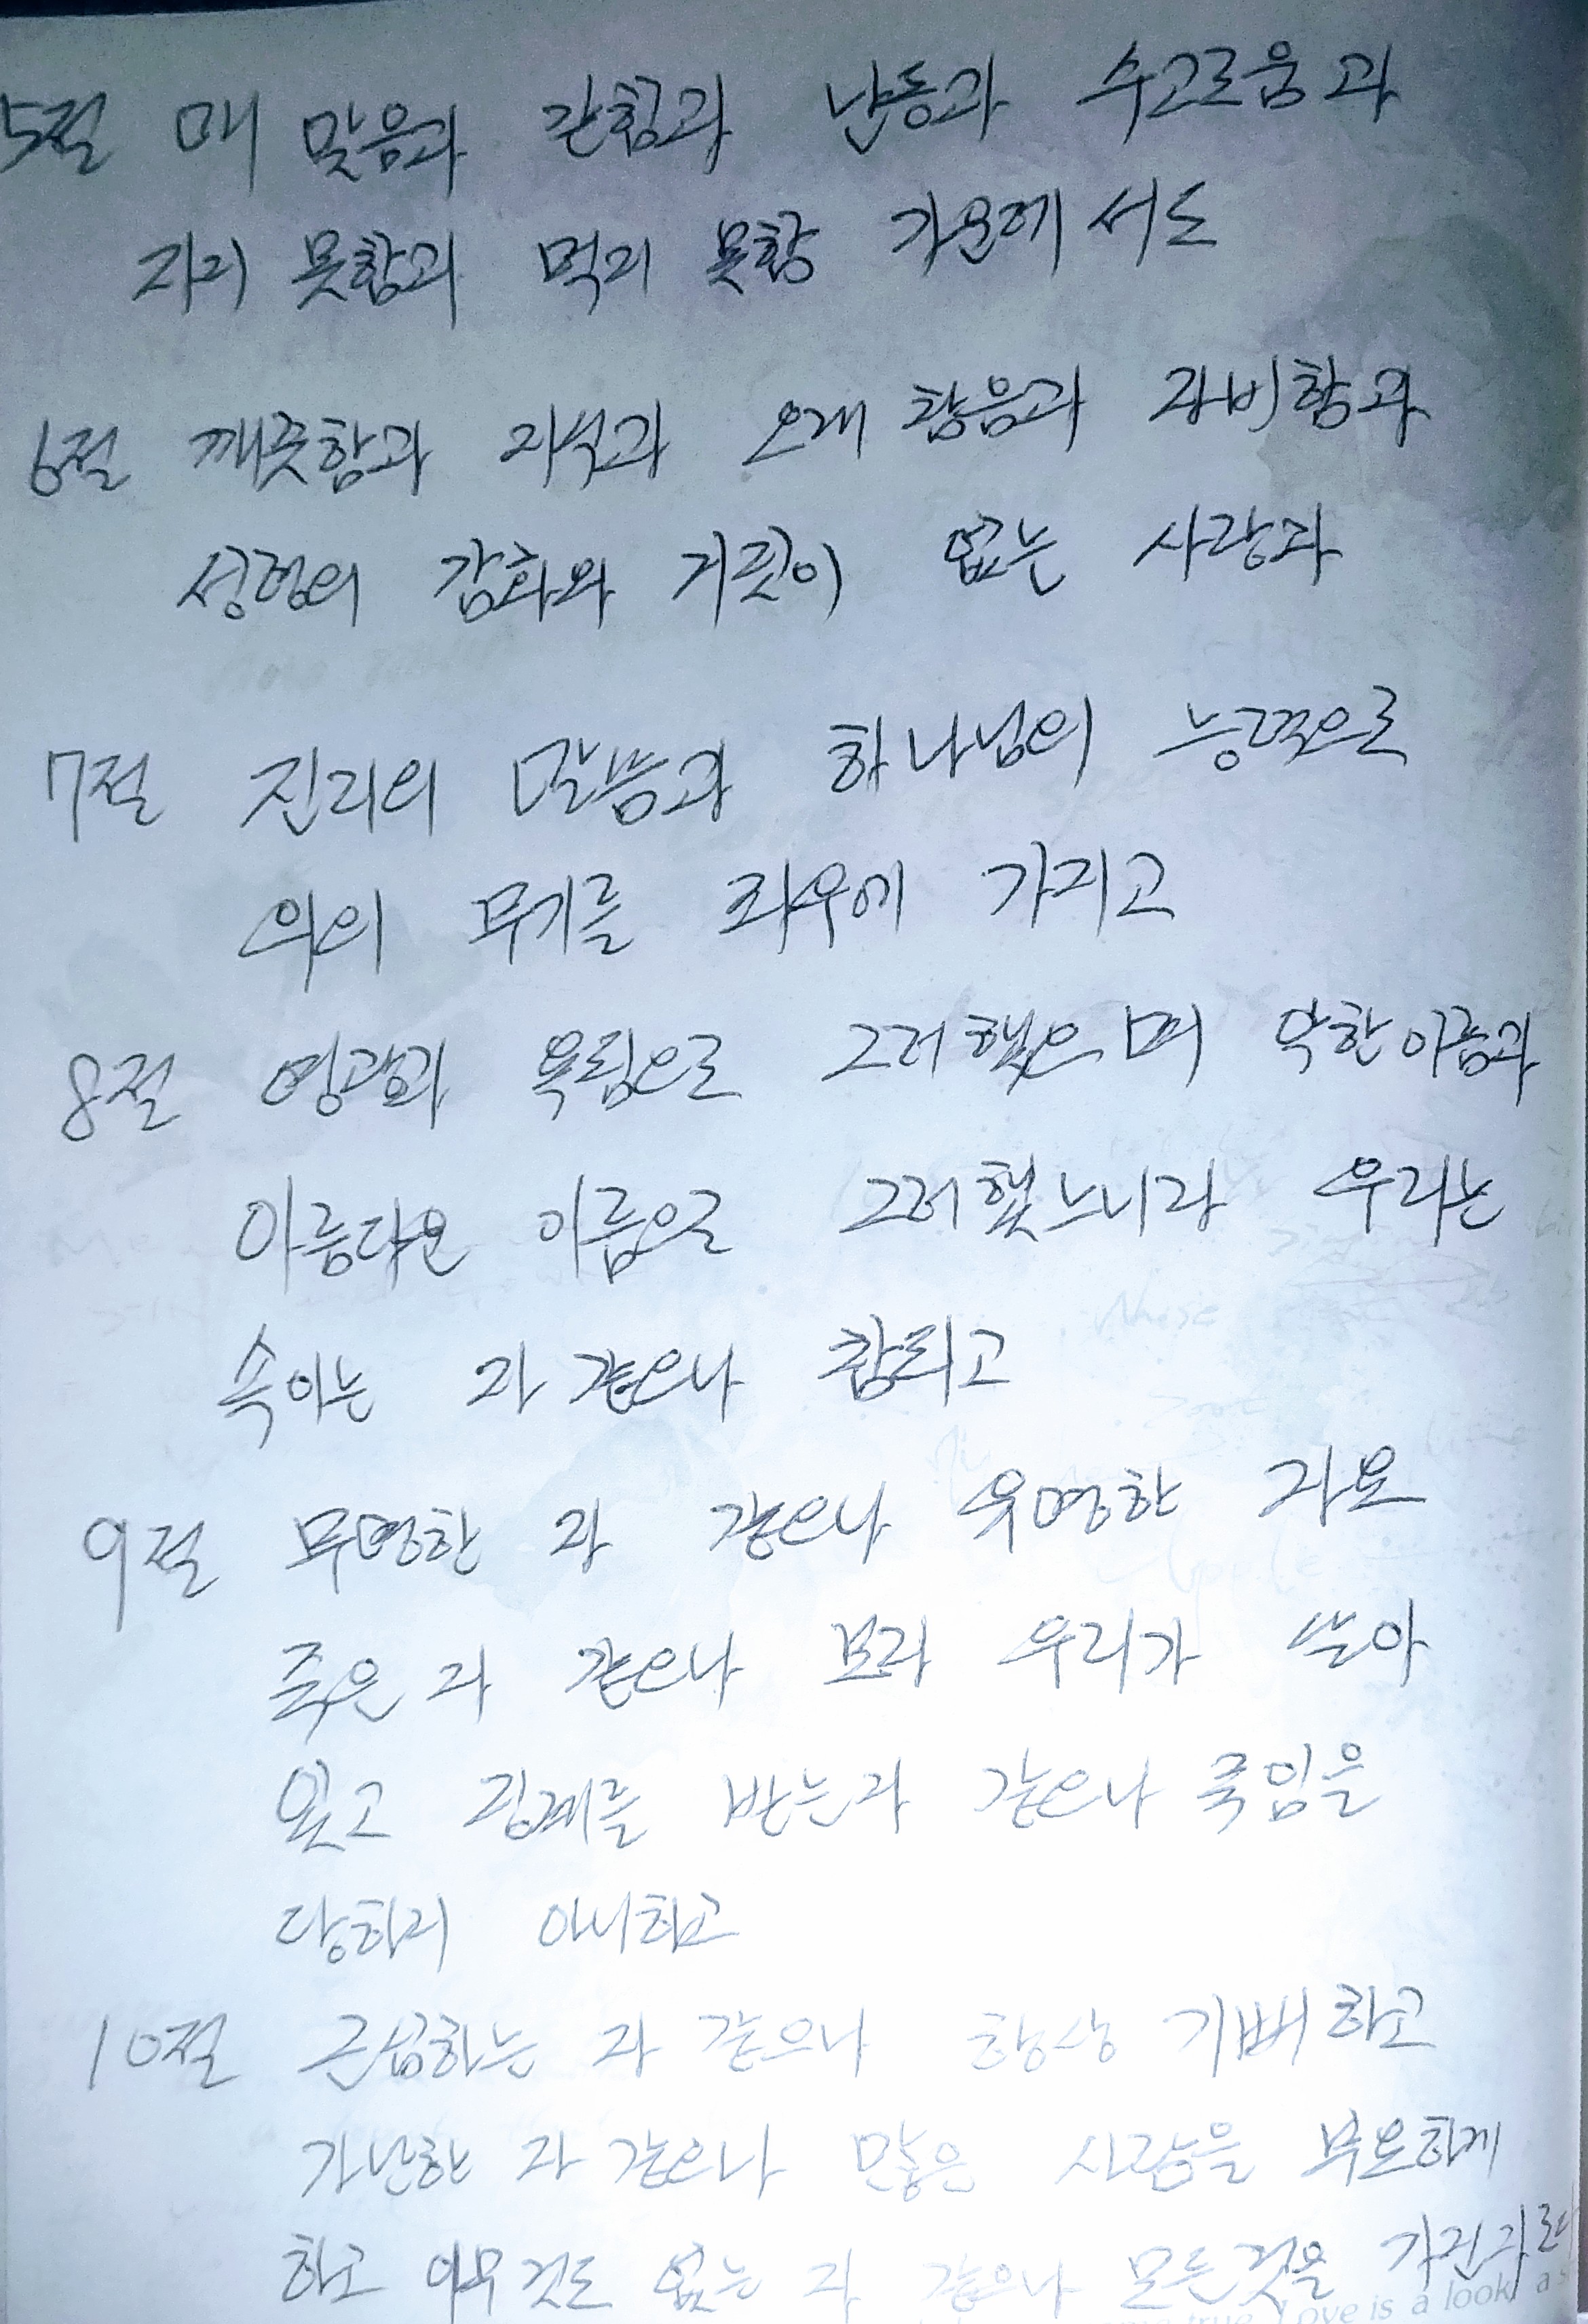 5절 매 맞음과 갇힘과 난동과 수고로움과
자지 못함과 먹지 못함 가운에서도
6절 깨끗함과 지식과 오래 참음과 자비함과
성령의 감화와 거짓이 없는 사랑과
7절 진리의 말씀과 하나님의 능력으로
의의 무기를 좌우에 가지고
8절 영광과 욕됨으로 그러했으며 악한 이름과
아름다운 이름으로 그러했느니라 우리는
속이는 자 같으나 참되고
9절 무명한 자 같으나 유명한 자요
죽은 자 같으나 보라 우리가 살아
있고 징계를 받는자 같으나 죽임을
당하지 아니하고
10절 근심하는 자 같으나 항상 기뻐하고
가난한 자 같으나 많은 사람을 부요하게
하고 아무것도 없는 자 같으나 모든것을 가진자로다
Love is a look